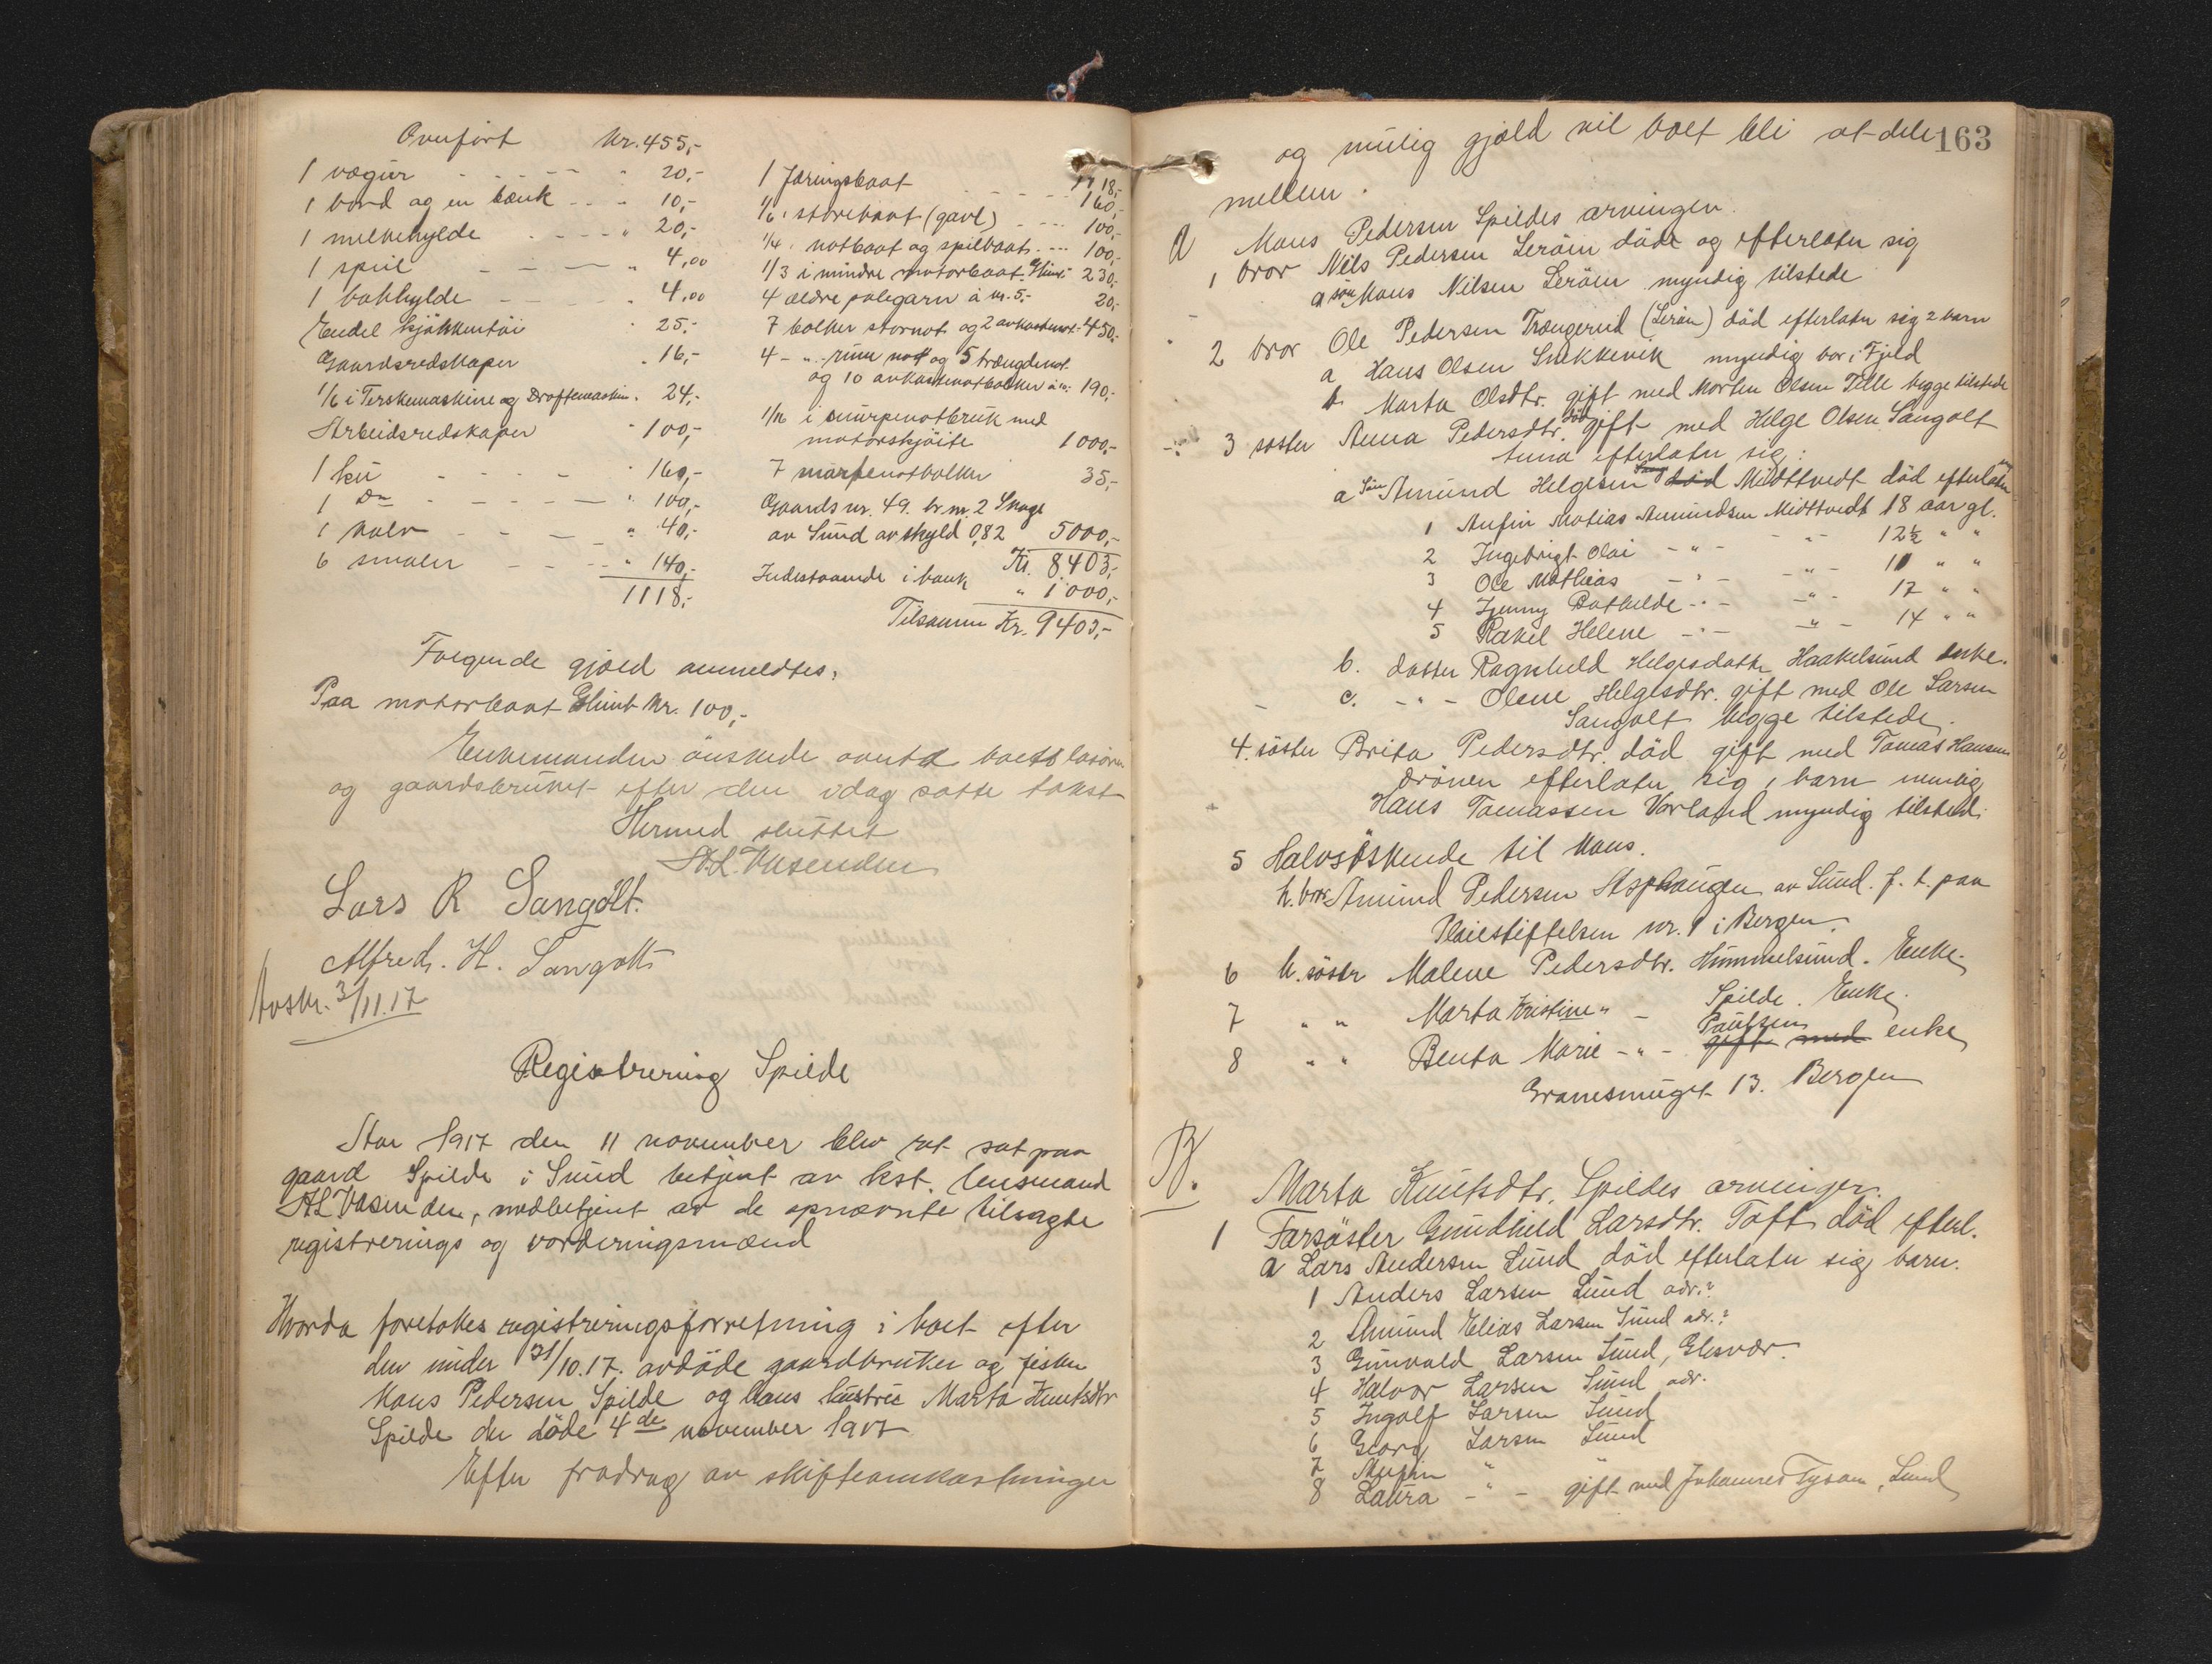 Overført Kr. 455,-
1 vægur - - - - " 20,-
1 bord og en bænk - - " 10,-
1 melkehylde - - - - " 20,-
1 speil - - - " 4,00
1 bokhylde - - - - " 4,00
Endel kjøkkentøi " 25,-
Gaardsredskaper " 16,-
1/6 i Terskemaskine og Drøftemaskin " 24,-
Arbeidsredskaper " 100,-
1 ku - - - - " 160,-
1 Do - - - - " 100,-
1 kalv - - - - " 40,-
6 smaler - - - " 140,-
1118,-
1 færingsbaat - - - 1118,-
160,-
1/6 i storebaat (gavl) - - - 100,-
1/4 i notbaat og spilbaat - - - 100,-
1/3 i mindre motorbaat Glimt 230,-
4 ældre palegarn à kr. 5,- 20,-
7 bolker stornot og 2 avkastnot 450,-
4 - " - not og 5 trængdenot
og 10 avkastnotbolker à 190,-
1/16 i snurpenotbruk med
motorskjøite 1000,-
7 notbolker 35,-
Gaards nr. 49. br. nr. 2 Snage
av Sund av skyld 0,82 5000,-
Kr. 8403,-
Indestaaende i bank " 1000,-
Tilsammen Kr. 9403,-
Følgende gjæld anmeldtes:
Paa motorbaat Glimt kr. 100,-
Enkemanden ønskede overta boets løsøre
og gaardsbruket efter den idag satte takst
Hermed sluttet
A L. Vasenden
Lars R Sangolt.
Alfred. H. Sangolt
Avskr. 3/11.17
Registrering Spilde
Aar 1917 den 11 november blev ret sat paa
gaard Spilde i Sund betjent av kst. lensmand
A L Vasenden, medbetjent av de opnævnte tilsagte
registrerings og vorderingsmænd
Hvorda foretokes registreringsforretning i boet efter
den under 31/10.17. avdøde gaardbruker og fisker
Mons Pedersen Spilde og hans hustru Marta Knutsdtr
Spilde der døde 4de november 1917
Efter fradrag av skifteomkostninger
163
og mulig gjæld vil boet bli at dele
mellem.
A Mons Pedersen Spildes arvinger.
1 bror Nils Pedersen Lerøen døde og efterlater sig
a søn Mons Nilsen Lerøen myndig tilstede
2 bror Ole Pedersen Trængereid (Lerøen) død efterlater sig 2 barn
a Hans Olsen Snekkevik myndig bor i Fjeld
b Marta Olsdtr. gift med Morten Olsen Telle begge tilstede
3 søster Anna Pedersdtr. død gift med Helge Olsen Sangolt
hun efterlater sig:
a Søn Amund Helgesen Midttvedt død efterlater sig
1 Anfin Matias Amundsen Midttvedt 18 aar gl.
2 Ingebrigt Olai - " - - " - 12½ " "
3 Ole Mathias - " - - " - 11 " "
4 Jenny Bothilde - " - - " - 17 " "
5 Rakel Helene - " - - " - 14 " "
b. datter Ragnhild Helgesdatter Haakelsund enke.
c. - " - Olene Helgesdtr. gift med Ole Larsen
Sangolt begge tilstede.
4. søster Brita Pedersdtr. død gift med Tomas Hansen
Drønen efterlater sig 1 barn nemlig
Hans Tomassen Vorland myndig tilstede.
5 Halvsøskende til Mons.
h. bror Amund Pedersen Asphaugen av Sund. f. t. paa
Pleiestiftelsen nr. 1 i Bergen.
6 h. søster Malene Pedersdtr. Hummelsund. Enke.
7 " " Marta Kristine " - Spilde. Enke.
8 " " Benta Marie - " - gift med Paulsen enke
Granesmuget 13. Bergen
B.
Marta Knutsdtr. Spildes arvinger.
1 Farsøster Gundhild Larsdtr. Toft død efterl.
a Lars Andersen Sund død efterlater sig barn.
1 Anders Larsen Sund adr.?
2 Amund Elias Larsen Sund adr.?
3 Gunvald Larsen Sund, Glesvær.
4 Halvor Larsen Sund adr.
5 Ingolf Larsen Sund
6 Georg Larsen Sund
7 " "
8 Laura - " - gift med Johannes Tyson, Sund